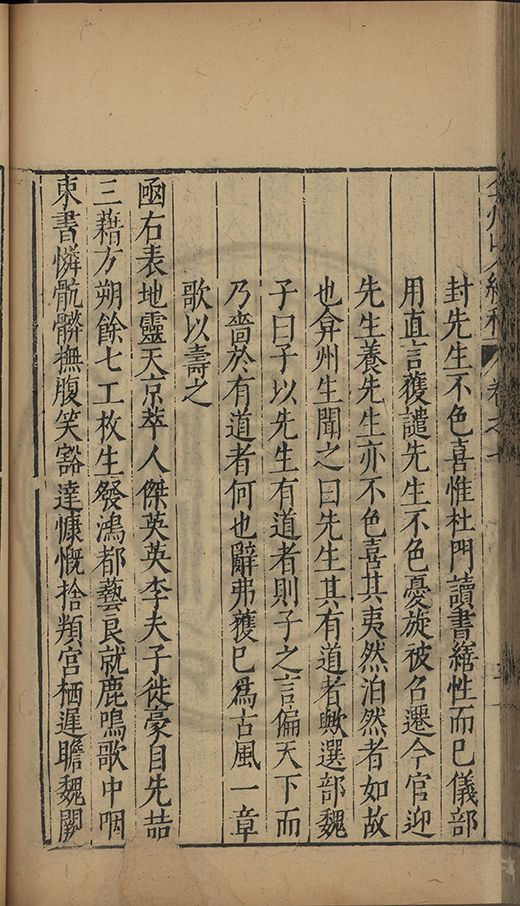 弇州山人續稿 卷之
封先生不色喜惟杜門讀書繕性而已儀部
用直言獲譴先生不色憂旋被召遷今官迎
先生養先生亦不色喜其夷然泊然者如故
也弇州生聞之曰先生其有道者歟選部魏
子曰子以先生有道者則子之言徧天下而
乃嗇於有道者何也辭弗獲已為古風一章
歌以壽之
凾右表地靈天京萃人傑英英李夫子徙豪自先喆
三藉方朔餘七工枚生發鴻都藝良就鹿鳴歌中咽
束書憐骯髒撫腹笑豁達慷慨捨頖宮栖遲瞻魏闕